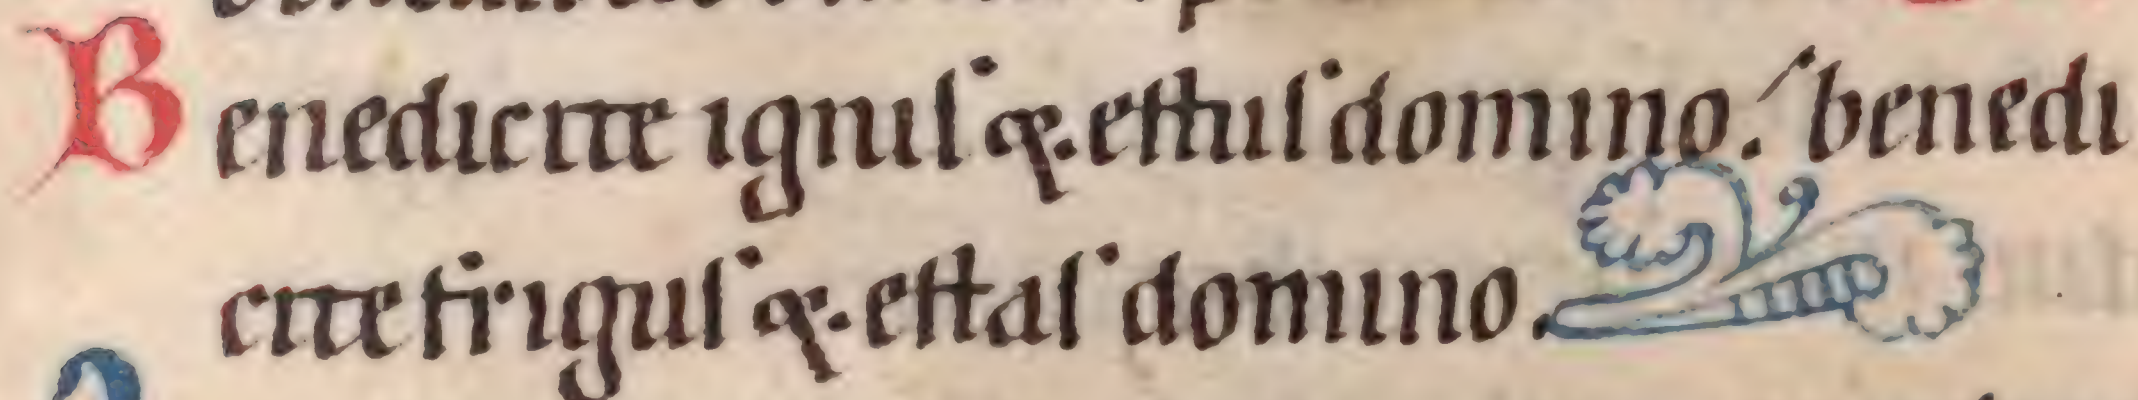 Benedicite ignis & estus domino. benedi
cite frigus & estas domino.